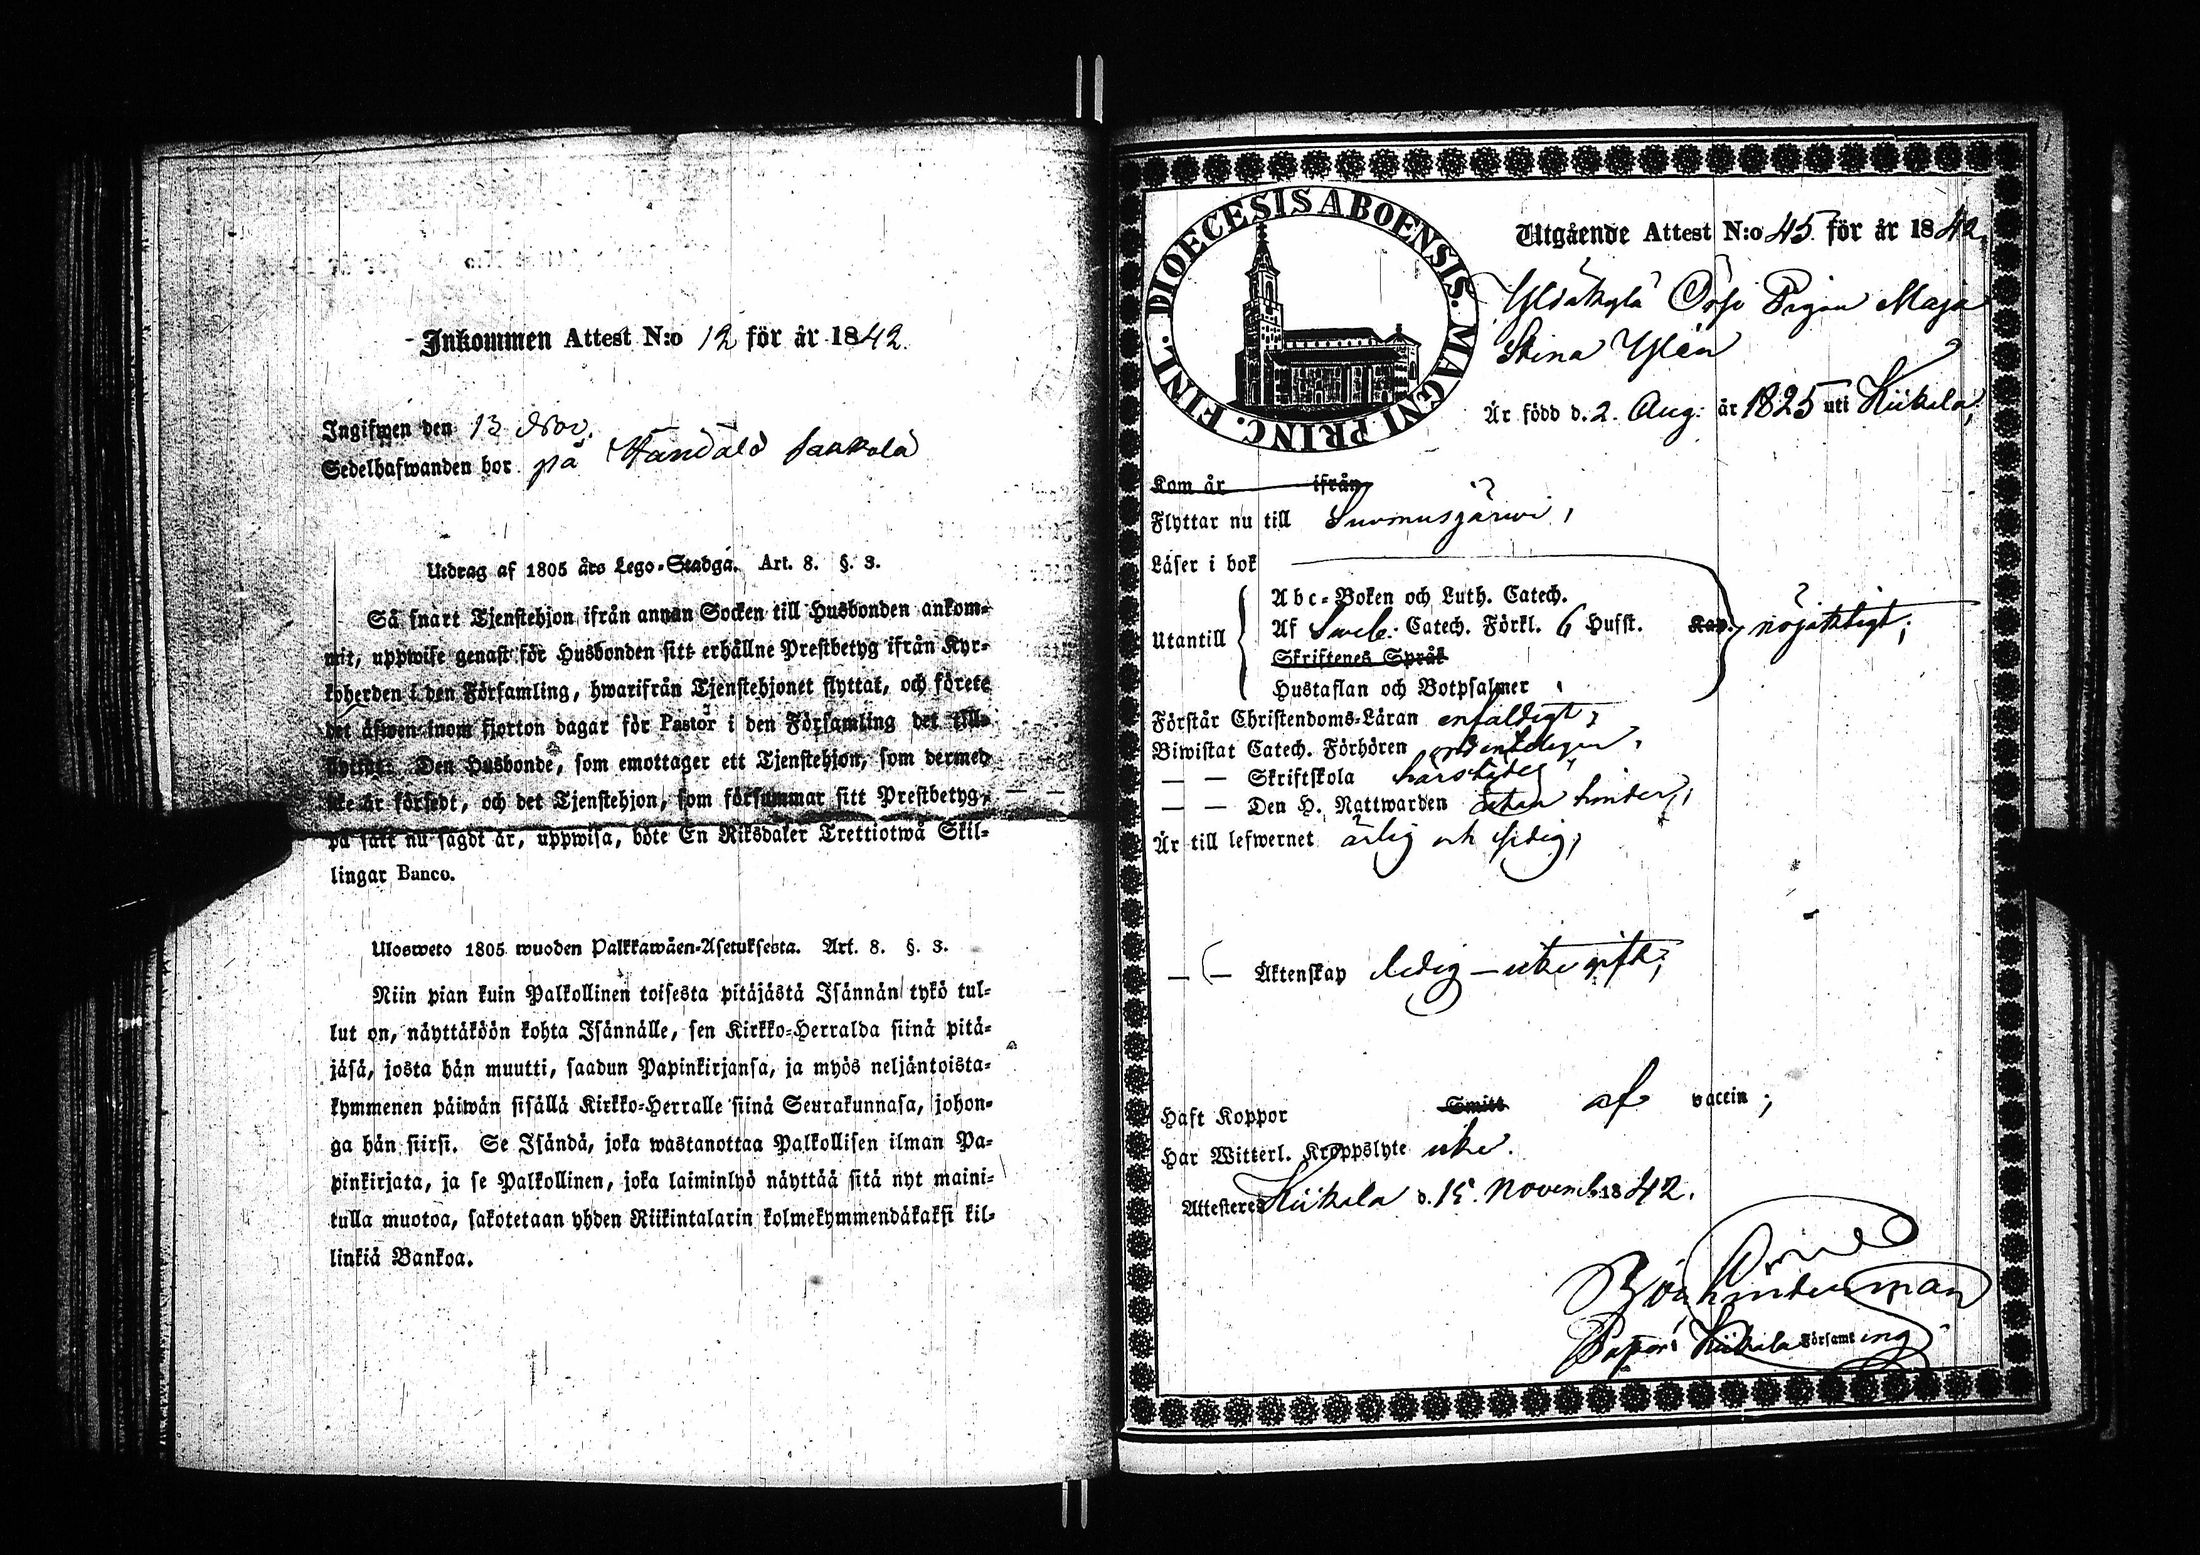 Inkommen Attest N:o 12 för år 1842.
Ingifwen den 13 Nov.
Sedelhafwanden bor på
Utdrag af 1805 års Lego-Stadga. Art. 8. §. 3.
Så snart Tjenstehjon ifrån annan Socken till Husbonden ankom-
mit, uppwise genast för Husbonden sitt erhållne Prestbetyg ifrån Kyr-
koherden i den Församling, hwarifrån Tjenstehjonet flyttat, och förete
det äfwen inom fjorton dagar för Pastor i den Församling det till-
flyttat. Den Husbonde, som emottager ett Tjenstehjon, som dermed
icke är försedt, och det Tjenstehjon, som försummar sitt Prestbetyg,
på sätt nu sagdt är, uppwisa, böte En Riksdaler Trettiotwå Skil-
lingar Banco.
Ulosweto 1805 wuoden Palkkawäen-Asetuksesta. Art. 8. §. 3.
Niin pian kuin Palkollinen toisesta pitäjästä Isännän tykö tul-
lut on, näyttäköön kohta Isännälle, sen Kirkko-Herralda siinä pitä-
jäsä, josta hän muutti, saadun Papinkirjansa, ja myös neljäntoista-
kymmenen päiwän sisällä Kirkko-Herralle siinä Seurakunnasa, johon-
ga hän siirsi. Se Isändä, joka wastanottaa Palkollisen ilman Pa-
pinkirjata, ja se Palkollinen, joka laiminlyö näyttää sitä nyt maini-
tulla muotoa, sakotetaan yhden Riikintalarin kolmekymmendäkaksi kil-
linkiä Bankoa.
DIOECESIS ABOENSIS. MAGNI PRINC. FINL.
Utgående Attest N:o 45 för år 1842.
Pigan Maja
Stina Ylén
Är född d. 2 Aug: år 1825 uti Kiikala;
Kom år ifrån
Flyttar nu till Suomusjärwi,
Läser i bok
Abc-Boken och Luth. Catech.
Utantill Af Sweb. Catech. Förkl. 6 Hufst. Kap. nöjaktligt;
Skriftenes Språk
Hustaflan och Botpsalmer
Förstår Christendoms-Läran enfaldigt,
Biwistat Catech. Förhören ordenteligen,
— — Skriftskola
— — Den H. Nattwarden utan hinder,
Är till lefwernet ärlig och sedig,
— — Äktenskap ledig – icke gift;
Haft Koppor Smitt af vaccin;
Har Witterl. Kroppslyte icke.
Attesteres Kiikala d. 15 Novemb. 1842.
Kiikala Församling